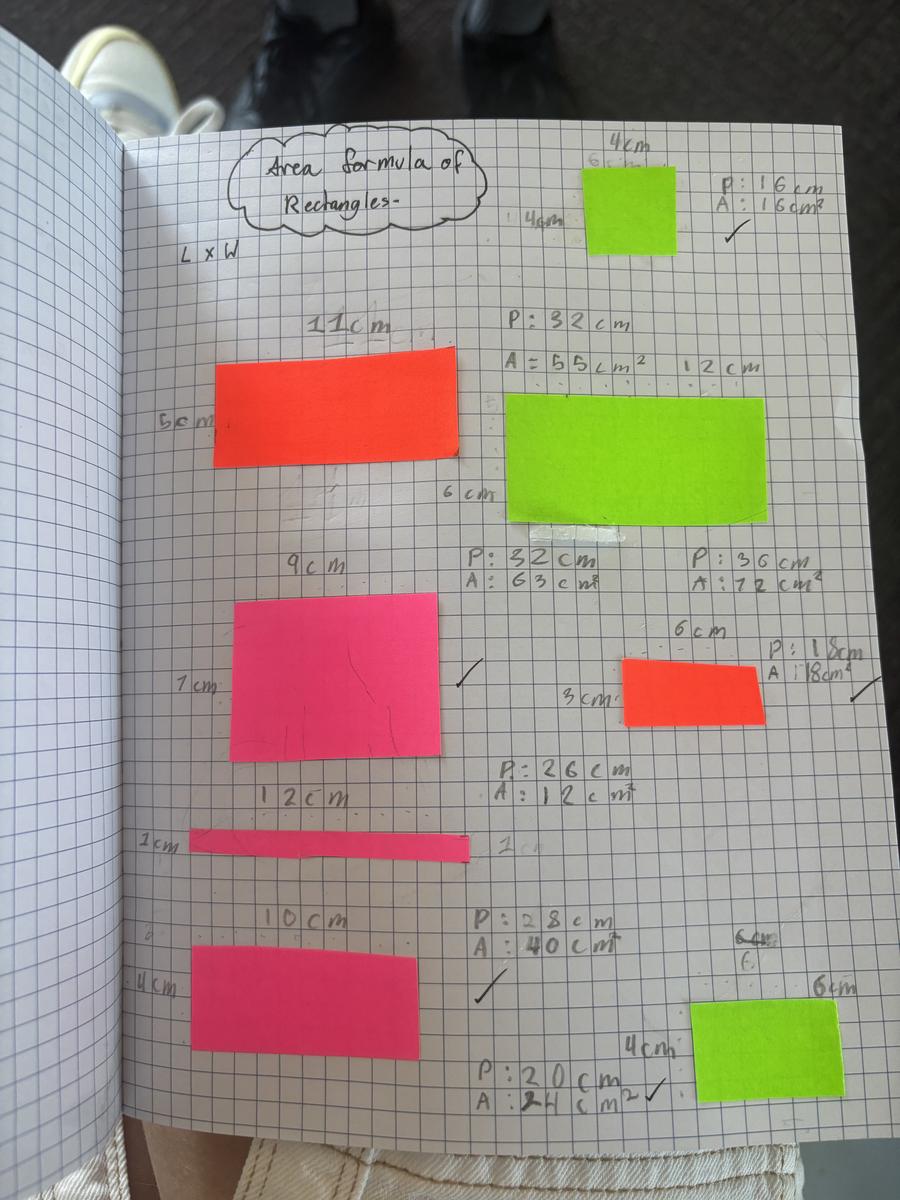 Area formula of
Rectangles-
L x W
4cm
4cm
P: 16cm
A: 16cm²
11cm
5cm
P: 32cm
A = 55cm²
12cm
6cm
P: 36cm
A: 72cm²
9cm
7cm
P: 32cm
A: 63cm²
6cm
3cm
P: 18cm
A: 18cm²
12cm
1cm
1cm
P: 26cm
A: 12cm²
10cm
4cm
P: 28cm
A: 40cm²
6
6cm
4cm
P: 20cm
A: 24cm²